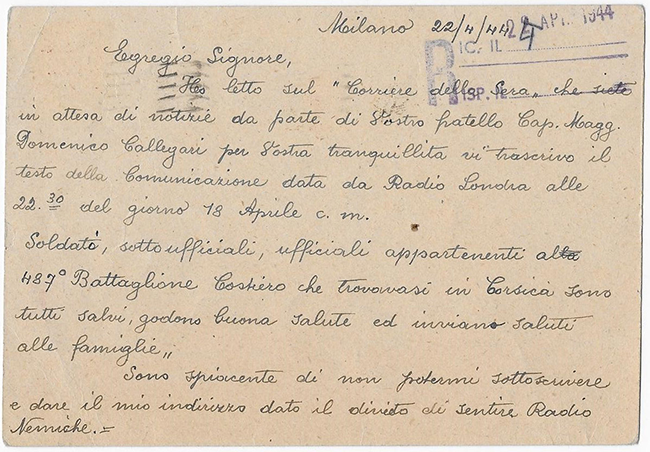 Milano 22/4/44
24 APR. 1944
RIC. IL
RISP. IL
Egregio Signore,
Ho letto sul "Corriere della Sera„ che siete
in attesa di notizie da parte di Vostro fratello Cap. Magg.
Domenico Callegari per Vostra tranquillita vi trascrivo il
testo della Comunicazione data da Radio Londra alle
22.30 del giorno 18 Aprile c. m.
Soldati, sottoufficiali, ufficiali appartenenti al
487° Battaglione Costiero che trovavasi in Corsica sono
tutti salvi, godono buona salute ed inviano saluti
alle famiglie„
Sono spiacente di non potermi sottoscrivere
e dare il mio indirizzo dato il divieto di sentire Radio
Nemiche.=